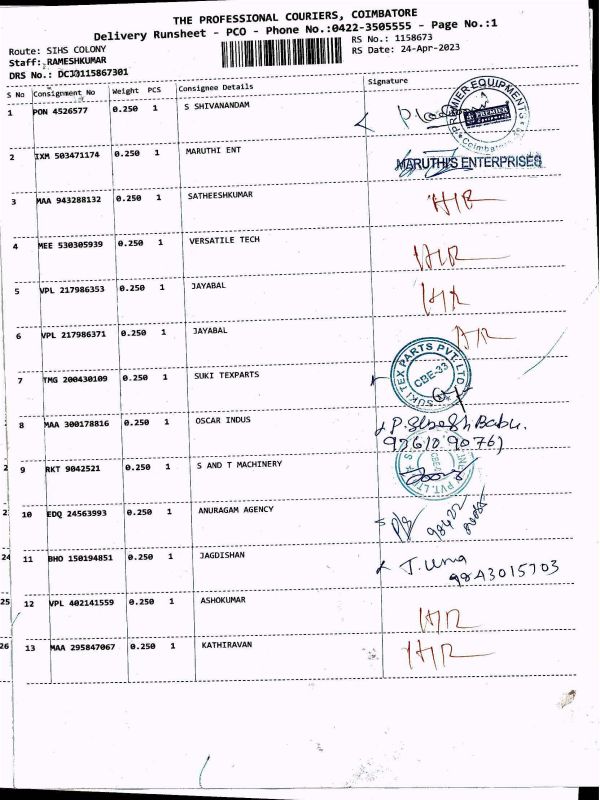 THE PROFESSIONAL COURIERS, COIMBATORE
Delivery Runsheet - PCO - Phone No.:0422-3505555 - Page No.:1
Route: SIHS COLONY
RS No.: 1158673
Staff: RAMESHKUMAR
RS Date: 24-Apr-2023
DRS No.: DCJ0115867301
S No Consignment No Weight PCS Consignee Details Signature
1 PON 4526577 0.250 1 S SHIVANANDAM
PREMIER EQUIPMENTS
PREMIER
Coimbatore
2 IXM 503471174 0.250 1 MARUTHI ENT
MARUTHI'S ENTERPRISES
3 MAA 943288132 0.250 1 SATHEESHKUMAR H/R
4 MEE 530305939 0.250 1 VERSATILE TECH H/R
5 VPL 217986353 0.250 1 JAYABAL H/R
6 VPL 217986371 0.250 1 JAYABAL H/R
7 TMG 200430109 0.250 1 SUKI TEXPARTS
SUKI TEX PARTS PVT. LTD.
CBE-33
8 MAA 300178816 0.250 1 OSCAR INDUS
97610 90761
2 9 RKT 9042521 0.250 1 S AND T MACHINERY
PVT. LTD.
2 10 EDQ 24563993 0.250 1 ANURAGAM AGENCY
98422
24 11 BHO 150194851 0.250 1 JAGDISHAN J. Uma
9843015703
25 12 VPL 402141559 0.250 1 ASHOKUMAR H/R
26 13 MAA 295847067 0.250 1 KATHIRAVAN H/R